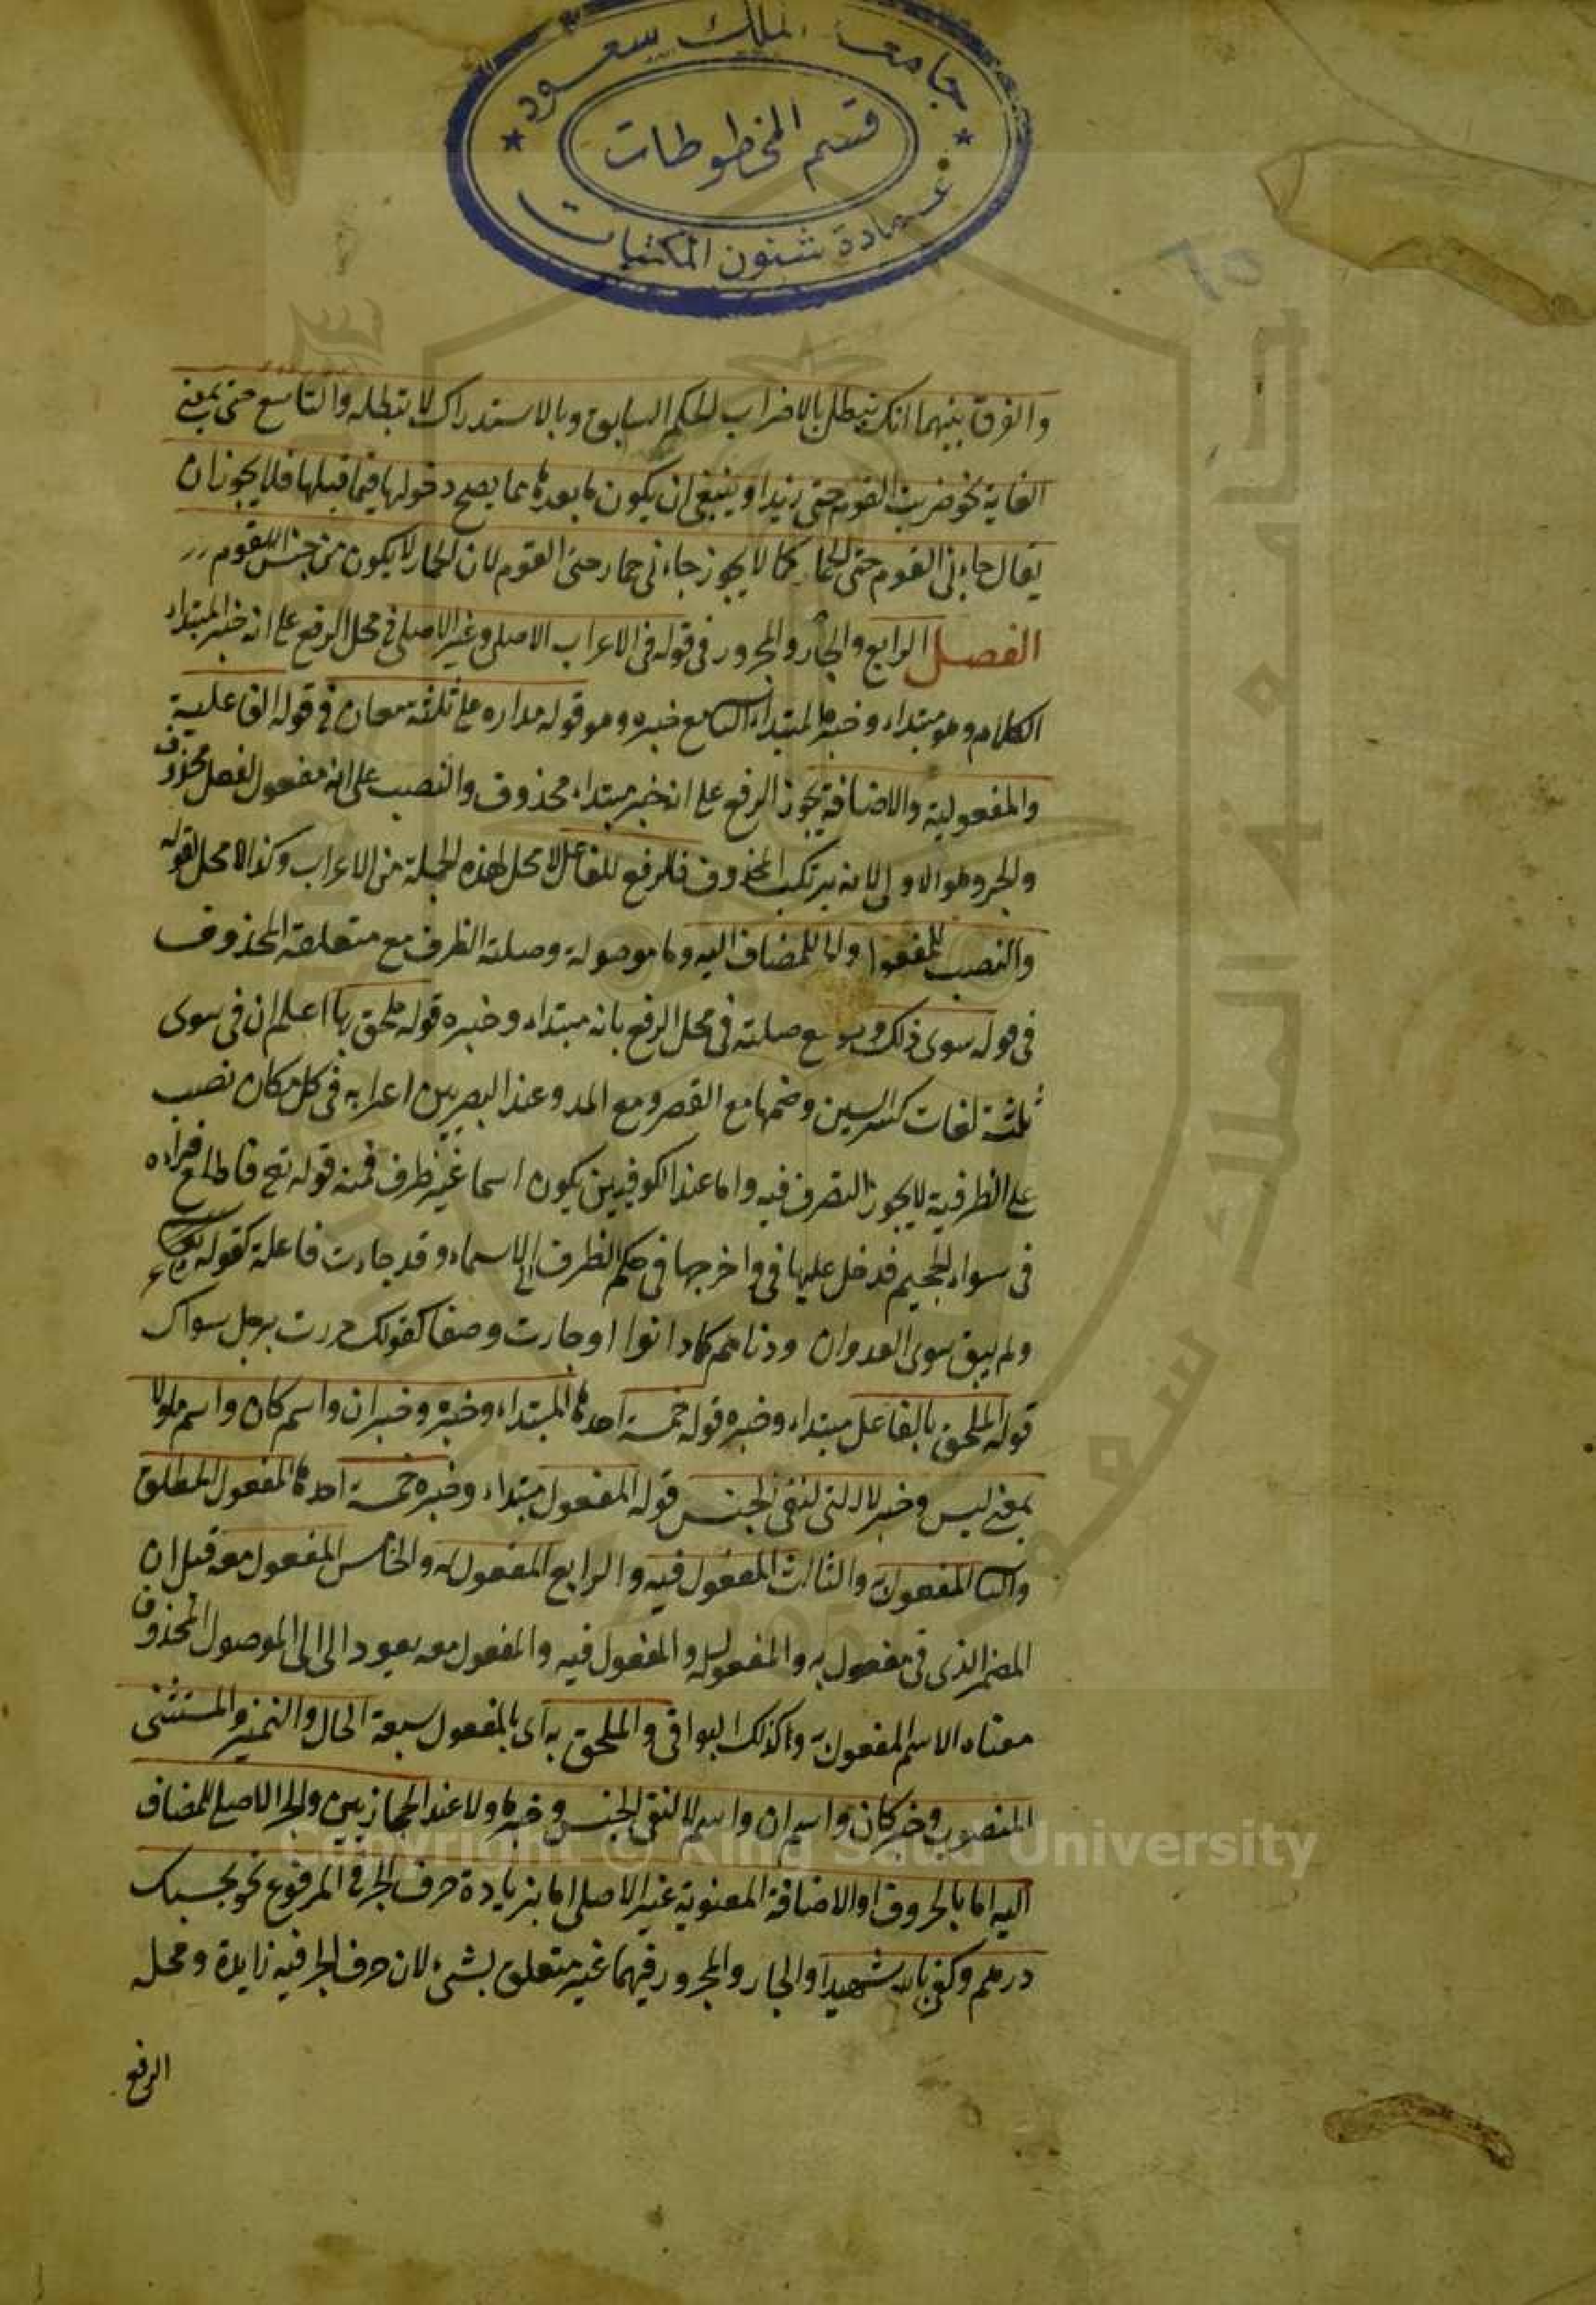 جامعة الملك سعود
قسم المخطوطات
عمادة شئون المكتبات
٦٥
والفرق بينهما انك تبطل بالاضراب الحكم السابق وبالاستدراك لا تبطله والتاسع حتى بمعنى
الغاية نحو ضربت القوم حتى زيدا وينبغي ان يكون ما بعدها مما يصح دخولها فيما قبلها فلا يجوز ان
يقال جاءني القوم حتى الحمار كما لا يجوز جاءني حمار حتى القوم لان الحمار لا يكون من جنس القوم
الفصل الرابع والجار والمجرور في قوله في الاعراب الاصلي وغير الاصلي في محل الرفع على انه خبر المبتداء
الكلام وهو مبتداء وخبره المبتداء مع خبره وهو قوله مداره على ثلثه معان في قوله الفاعلية
والمفعولية والاضافة يجوز الرفع على انه خبر مبتداء محذوف والنصب على انه مفعول لفعل محذوف
والجر وهو الاولى لانه يرتكب المحذوف فالرفع للفاعل لا محل لهذه الجملة من الاعراب وكذا لا محل لقوله
والنصب للمفعول وما للمضاف اليه وما موصولة وصلته الظرف مع متعلقه المحذوف
في قوله سوى ذلك وهو مع صلته في محل الرفع بانه مبتداء وخبره قوله ملحق بها اعلم ان في سوى
ثلثة لغات كسر السين وضمها مع القصر ومع المد وعند البصريين اعرابه في كل مكان نصب
على الظرفية لا يجوز التصرف فيه واما عند الكوفيين يكون اسما غير ظرف فمنه قوله تع فاطلع فراه
في سواء الجحيم فدخل عليها في واخرجها في حكم الظرف الى الاسماء وقد جاءت فاعلة كقوله
ولم يبق سوى العدوان دناهم كما دانوا او جارت وصفا كقولك مررت برجل سواك
قوله الملحق بالفاعل مبتداء وخبره قوله خمسة احدها المبتداء وخبره وخبر ان واسم كان واسم ما ولا
بمعنى ليس وخبر لا التى لنفى الجنس قوله المفعول مبتداء وخبره خمسة احدها المفعول المطلق
والثا المفعول به والثالث المفعول فيه والرابع المفعول له والخامس المفعول معه قبل ان
المضمر الذى في مفعول به والمفعول له والمفعول فيه والمفعول معه يعود الى الى الموصول المحذوف
معناه الاسم المفعول به وكذلك البواقى والملحق به اى بالمفعول سبعة الحال والتميز والمستثنى
المنصوب وخبر كان واسم ان واسم لا لنفى الجنس وخبر ما ولا عند الحجازيين والجر الاصلى للمضاف
اليه اما بالحروف او الاضافة المعنوية غير الاصلى اما بزيادة حرف الجر في المرفوع نحو بحسبك
درهم وكفى بالله شهيدا والجار والمجرور فيهما غير متعلق بشيء لان حرف الجر فيه زايدة ومحله
الرفع
Copyright © King Saud University